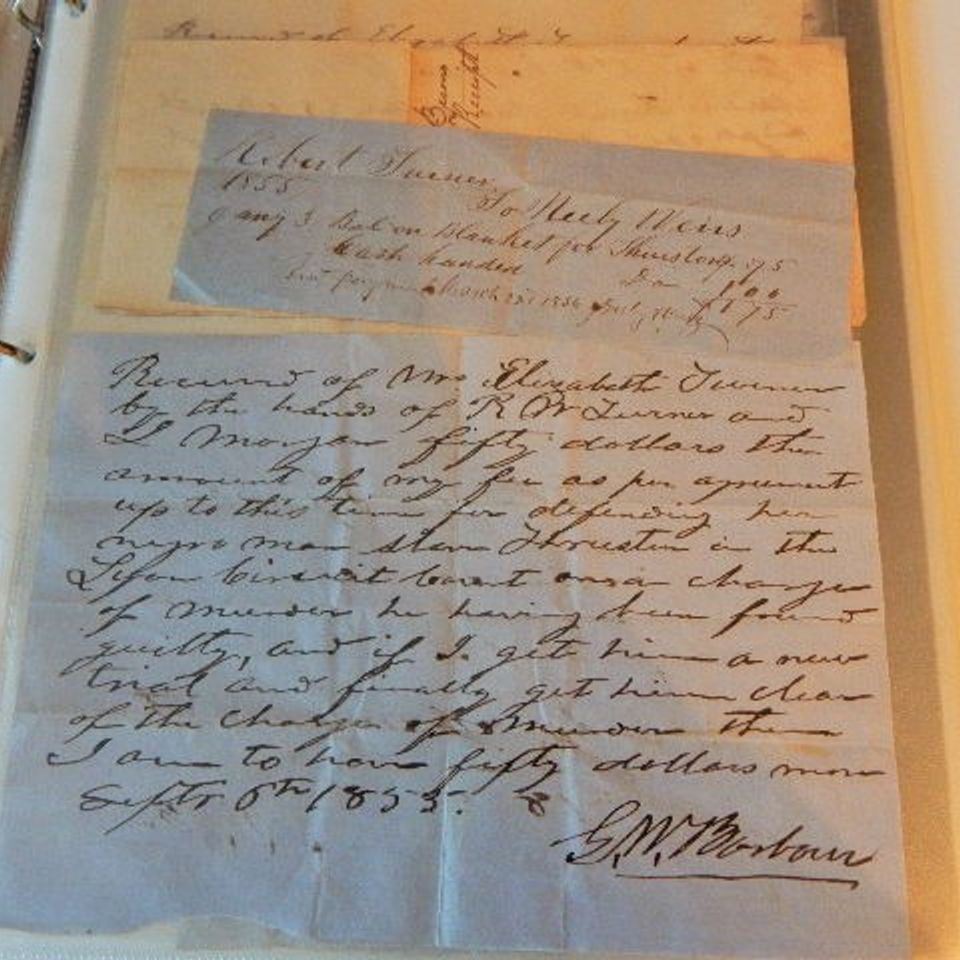 Received of Elizabeth
Receipt
Robert Turner
1855
To Neely
aug 3 Bal on Blanket for 75
Cash handed Do 1.00
March 1856 $1.75
Received of Mrs Elizabeth Turner
by the hands of R W Turner and
Morgan fifty dollars the
amount of my fee as per agreement
up to this time for defending her
negro man slave Thruston in the
Lyon Circuit Court on a charge
of murder he having been found
guilty, and if I get him a new
trial and finally get him clear
of the charge of murder then
I am to have fifty dollars more
Septr 6th 1855.
G. W. Barbour